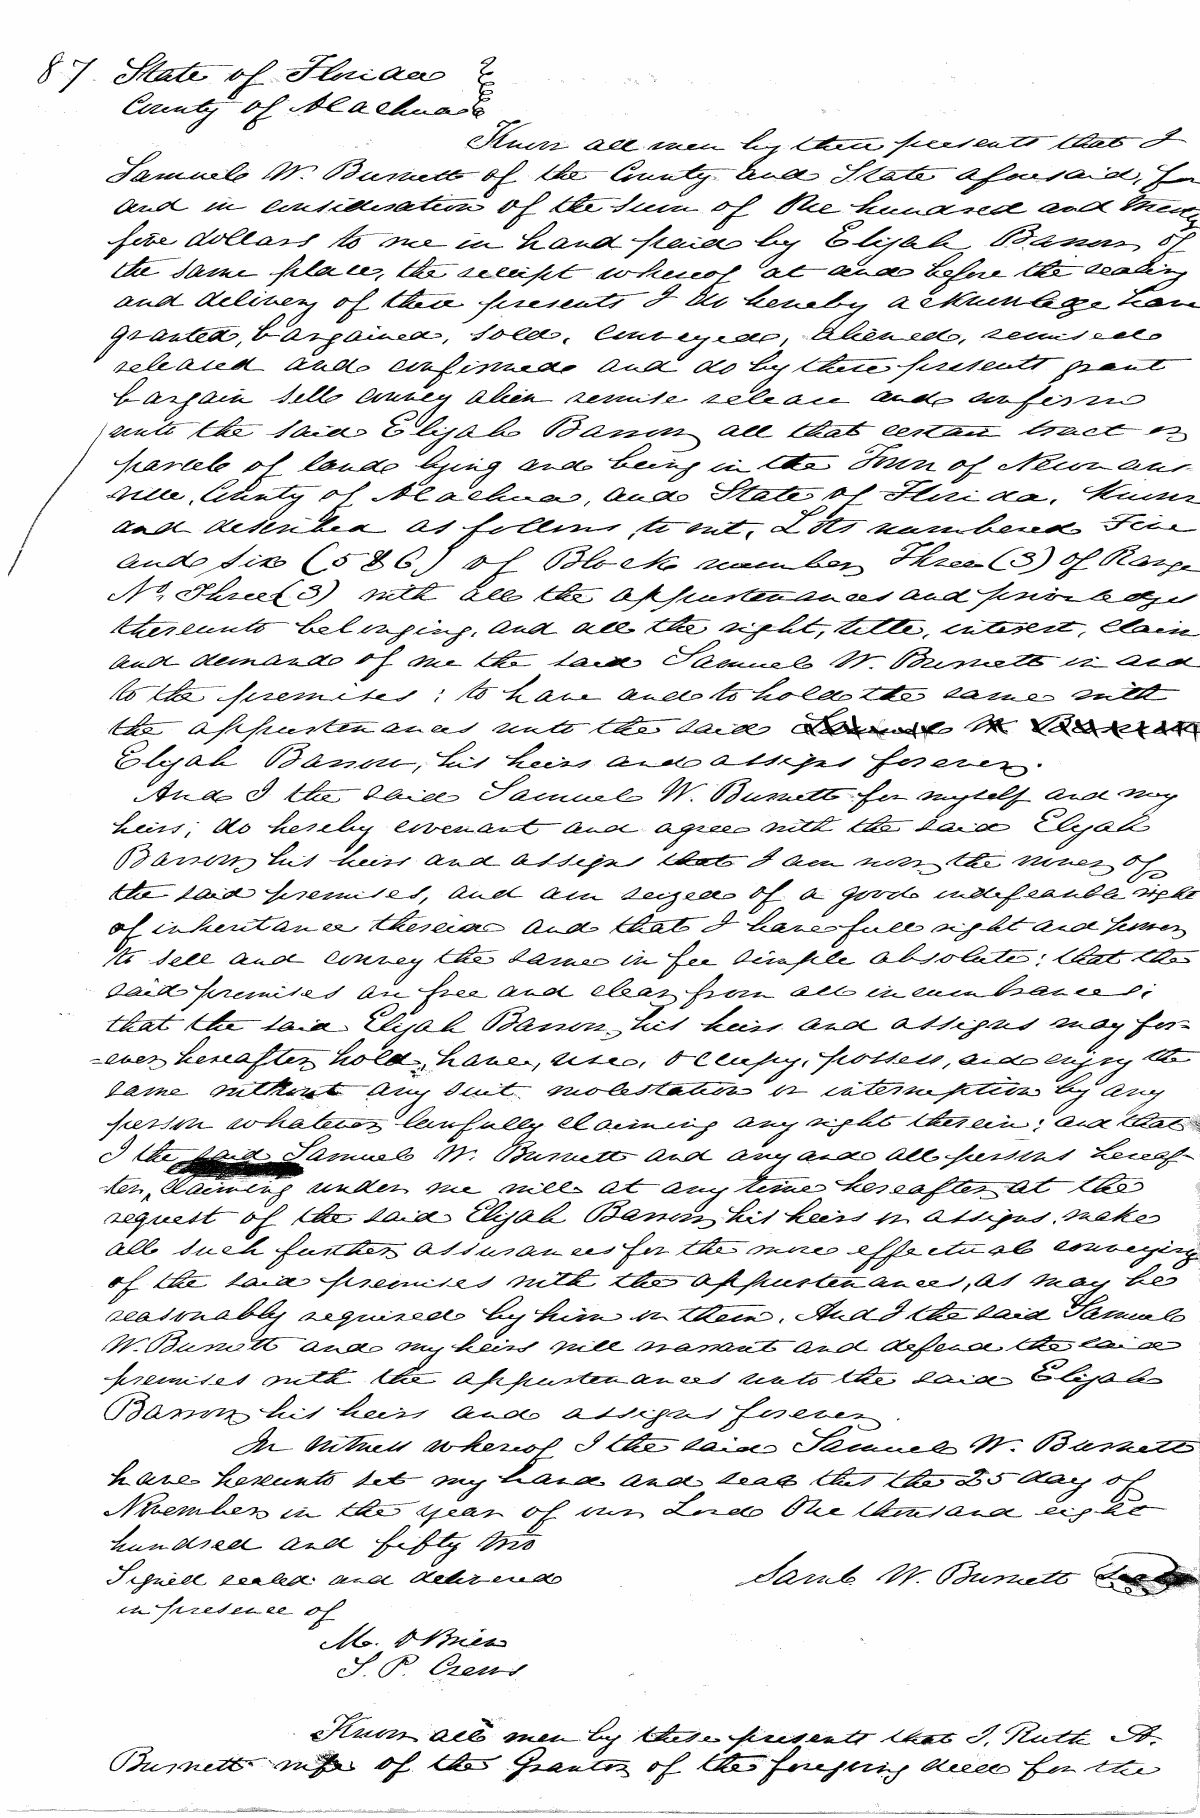 87. State of Florida
County of Alachua
Know all men by these presents that I
Samuel W. Burnett of the County and State aforesaid, for
and in consideration of the sum of One hundred and twenty
five dollars to me in hand paid by Elijah Barrow of
the same place, the receipt whereof at and before the sealing
and delivery of these presents I do hereby acknowledge have
granted, bargained, sold, conveyed, aliened, remised
released and confirmed and do by these presents grant
bargain sell convey alien remise release and confirm
unto the said Elijah Barrow all that certain tract or
parcel of land lying and being in the Town of Newnans-
ville, County of Alachua, and State of Florida. Known
and described as follows, to wit, Lots numbered Five
and six (5 & 6) of Block number Three (3) of Range
No. Three (3) with all the appurtenances and privileges
thereunto belonging, and all the right, title, interest, claim
and demand of me the said Samuel W. Burnett in and
to the premises: to have and to hold the same with
the appurtenances unto the said Samuel W Burnett
Elijah Barrow, his heirs and assigns forever.
And I the said Samuel W. Burnett for myself and my
heirs, do hereby covenant and agree with the said Elijah
Barrow, his heirs and assigns that I am now the owner of
the said premises, and am seized of a good indefeasible right
of inheritance therein and that I have full right and power
to sell and convey the same in fee simple absolute: that the
said premises are free and clear from all incumbrances;
that the said Elijah Barrow, his heirs and assigns may for-
-ever hereafter hold, have, use, occupy, possess, and enjoy the
same without any suit molestation or interruption by any
person whatever lawfully claiming any right therein: and that
I the said Samuel W. Burnett and any and all persons hereaf-
ter, claiming under me will at any time hereafter at the
request of the said Elijah Barrow, his heirs or assigns, make
all such further assurances for the more effectual conveying
of the said premises with the appurtenances, as may be
reasonably required by him or them. And I the said Samuel
W. Burnett and my heirs will warrant and defend the said
premises with the appurtenances unto the said Elijah
Barrow his heirs and assigns forever.
In witness whereof I the said Samuel W. Burnett
have hereunto set my hand and seal this the 25 day of
November in the year of our Lord One thousand eight
hundred and fifty two
Signed sealed and delivered Saml W. Burnett Seal
in presence of
M. O'Brien
S. P. Crews
Know all men by these presents that I, Ruth A.
Burnett wife of the Grantor of the foregoing deed for the